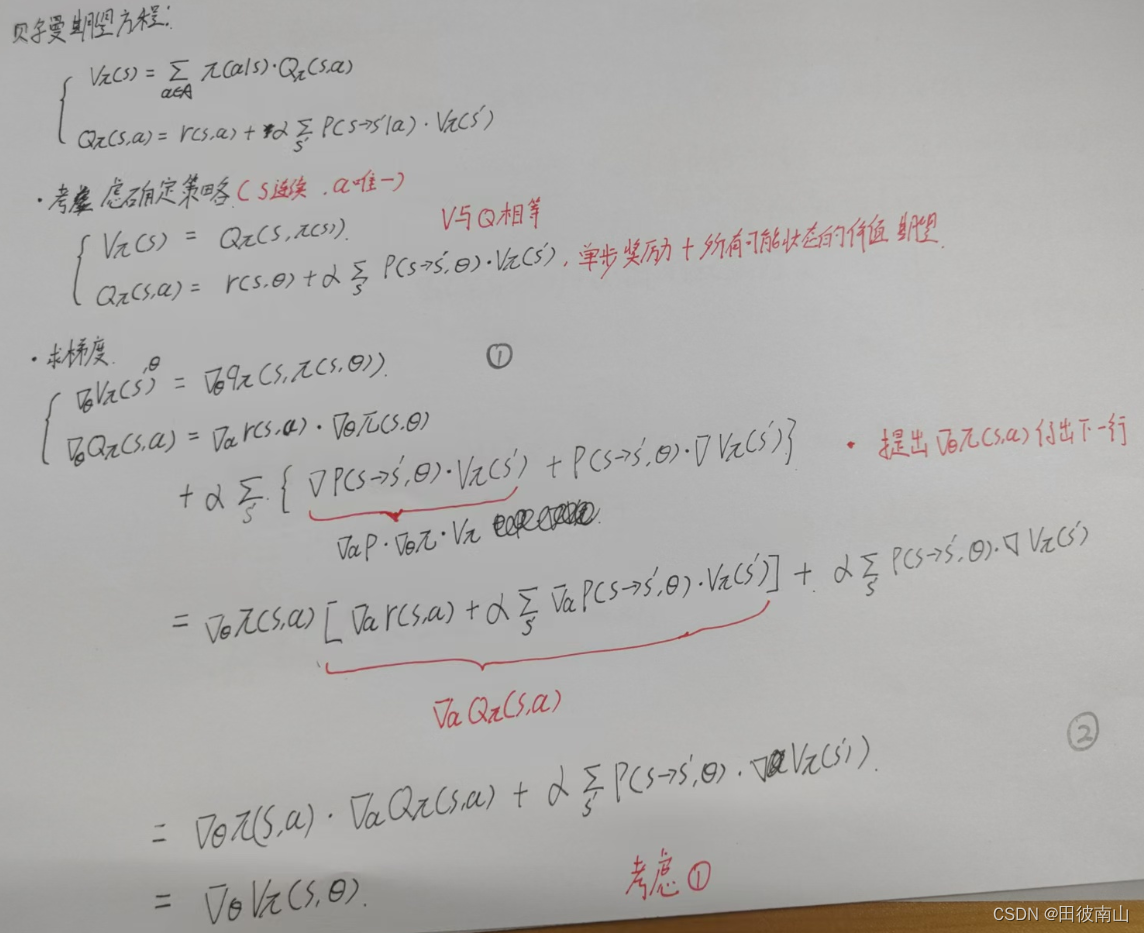 贝尔曼期望方程:
Vπ(s) = Σ_{a∈A} π(a|s)·Qπ(s,a)
Qπ(s,a) = r(s,a) + α Σ_{s'} P(s→s'|a)·Vπ(s')
·考虑确定策略(s连续.a唯一)
Vπ(s) = Qπ(s,π(s)). V与Q相等
Qπ(s,a) = r(s,θ) + α Σ_{s'} P(s→s',θ)·Vπ(s'). 单步奖励+所有可能状态的价值期望.
·求梯度. ①
∇θVπ(s,θ) = ∇θqπ(s,π(s,θ)).
∇θQπ(s,a) = ∇a r(s,a)·∇θπ(s,θ)
+ α Σ_{s'} { ∇P(s→s',θ)·Vπ(s') + P(s→s',θ)·∇Vπ(s')} ·提出∇θπ(s,a)付出下一行
∇aP·∇θπ·Vπ
= ∇θπ(s,a)[∇a r(s,a) + α Σ_{s'} ∇aP(s→s',θ)·Vπ(s')] + α Σ_{s'} P(s→s',θ)·∇Vπ(s')
∇aQπ(s,a)
②
= ∇θπ(s,a)·∇aQπ(s,a) + α Σ_{s'} P(s→s',θ)·∇Vπ(s').
= ∇θVπ(s,θ). 考虑①
CSDN @田彼南山